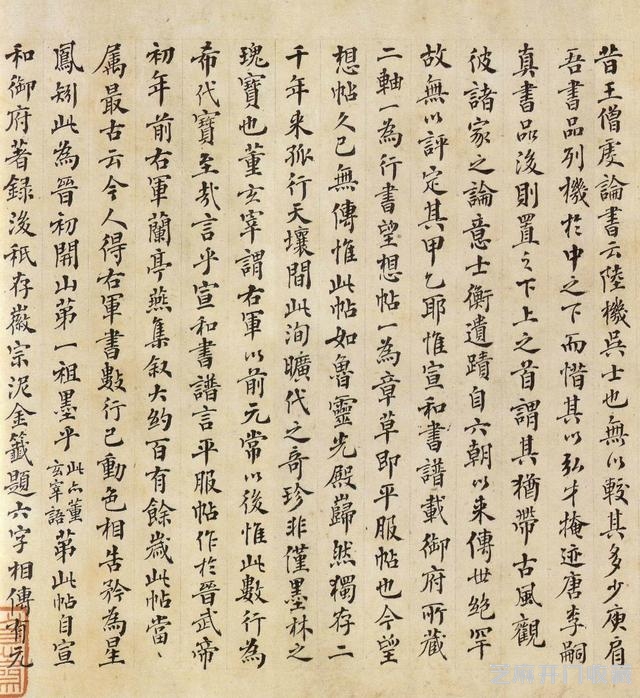 昔王僧虔論書云陸機吳士也無以較其多少庾肩
吾書品列機於中之下而惜其以弘才掩迹唐李嗣
真書品後則置之下上之首謂其猶帶古風觀
彼諸家之論意士衡遺蹟自六朝以來傳世絕罕
故無以評定其甲乙耶惟宣和書譜載御府所藏
二軸一為行書望想帖一為章草即平服帖也今望
想帖久已無傳惟此帖如魯靈光殿巋然獨存二
千年來孤行天壤間此洵曠代之奇珍非僅墨林之
瑰寶也董玄宰謂右軍以前元常以後惟此數行為
希代寶至哉言乎宣和書譜言平服帖作於晉武帝
初年前右軍蘭亭燕集叙大約百有餘歲此帖當
属最古云今人得右軍書數行已動色相告矜為星
鳳矧此為晉初開山第一祖墨乎此亦董玄宰語第此帖自宣
和御府著録後祇存徽宗泥金籤題六字相傳有元
芝麻开门临摹